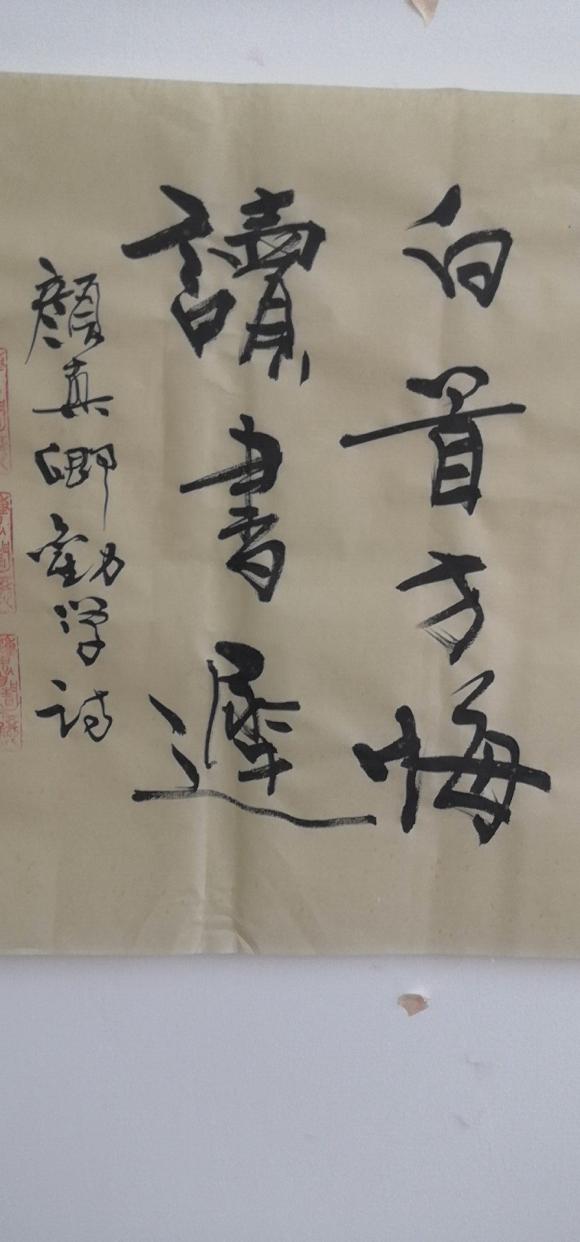 白首方悔
讀書遲
顏真卿勸学詩